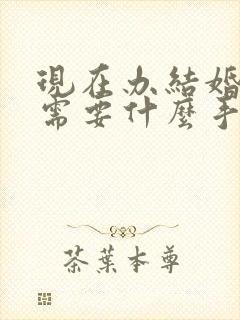 現在办結婚
需要什麼手
茶葉本尊